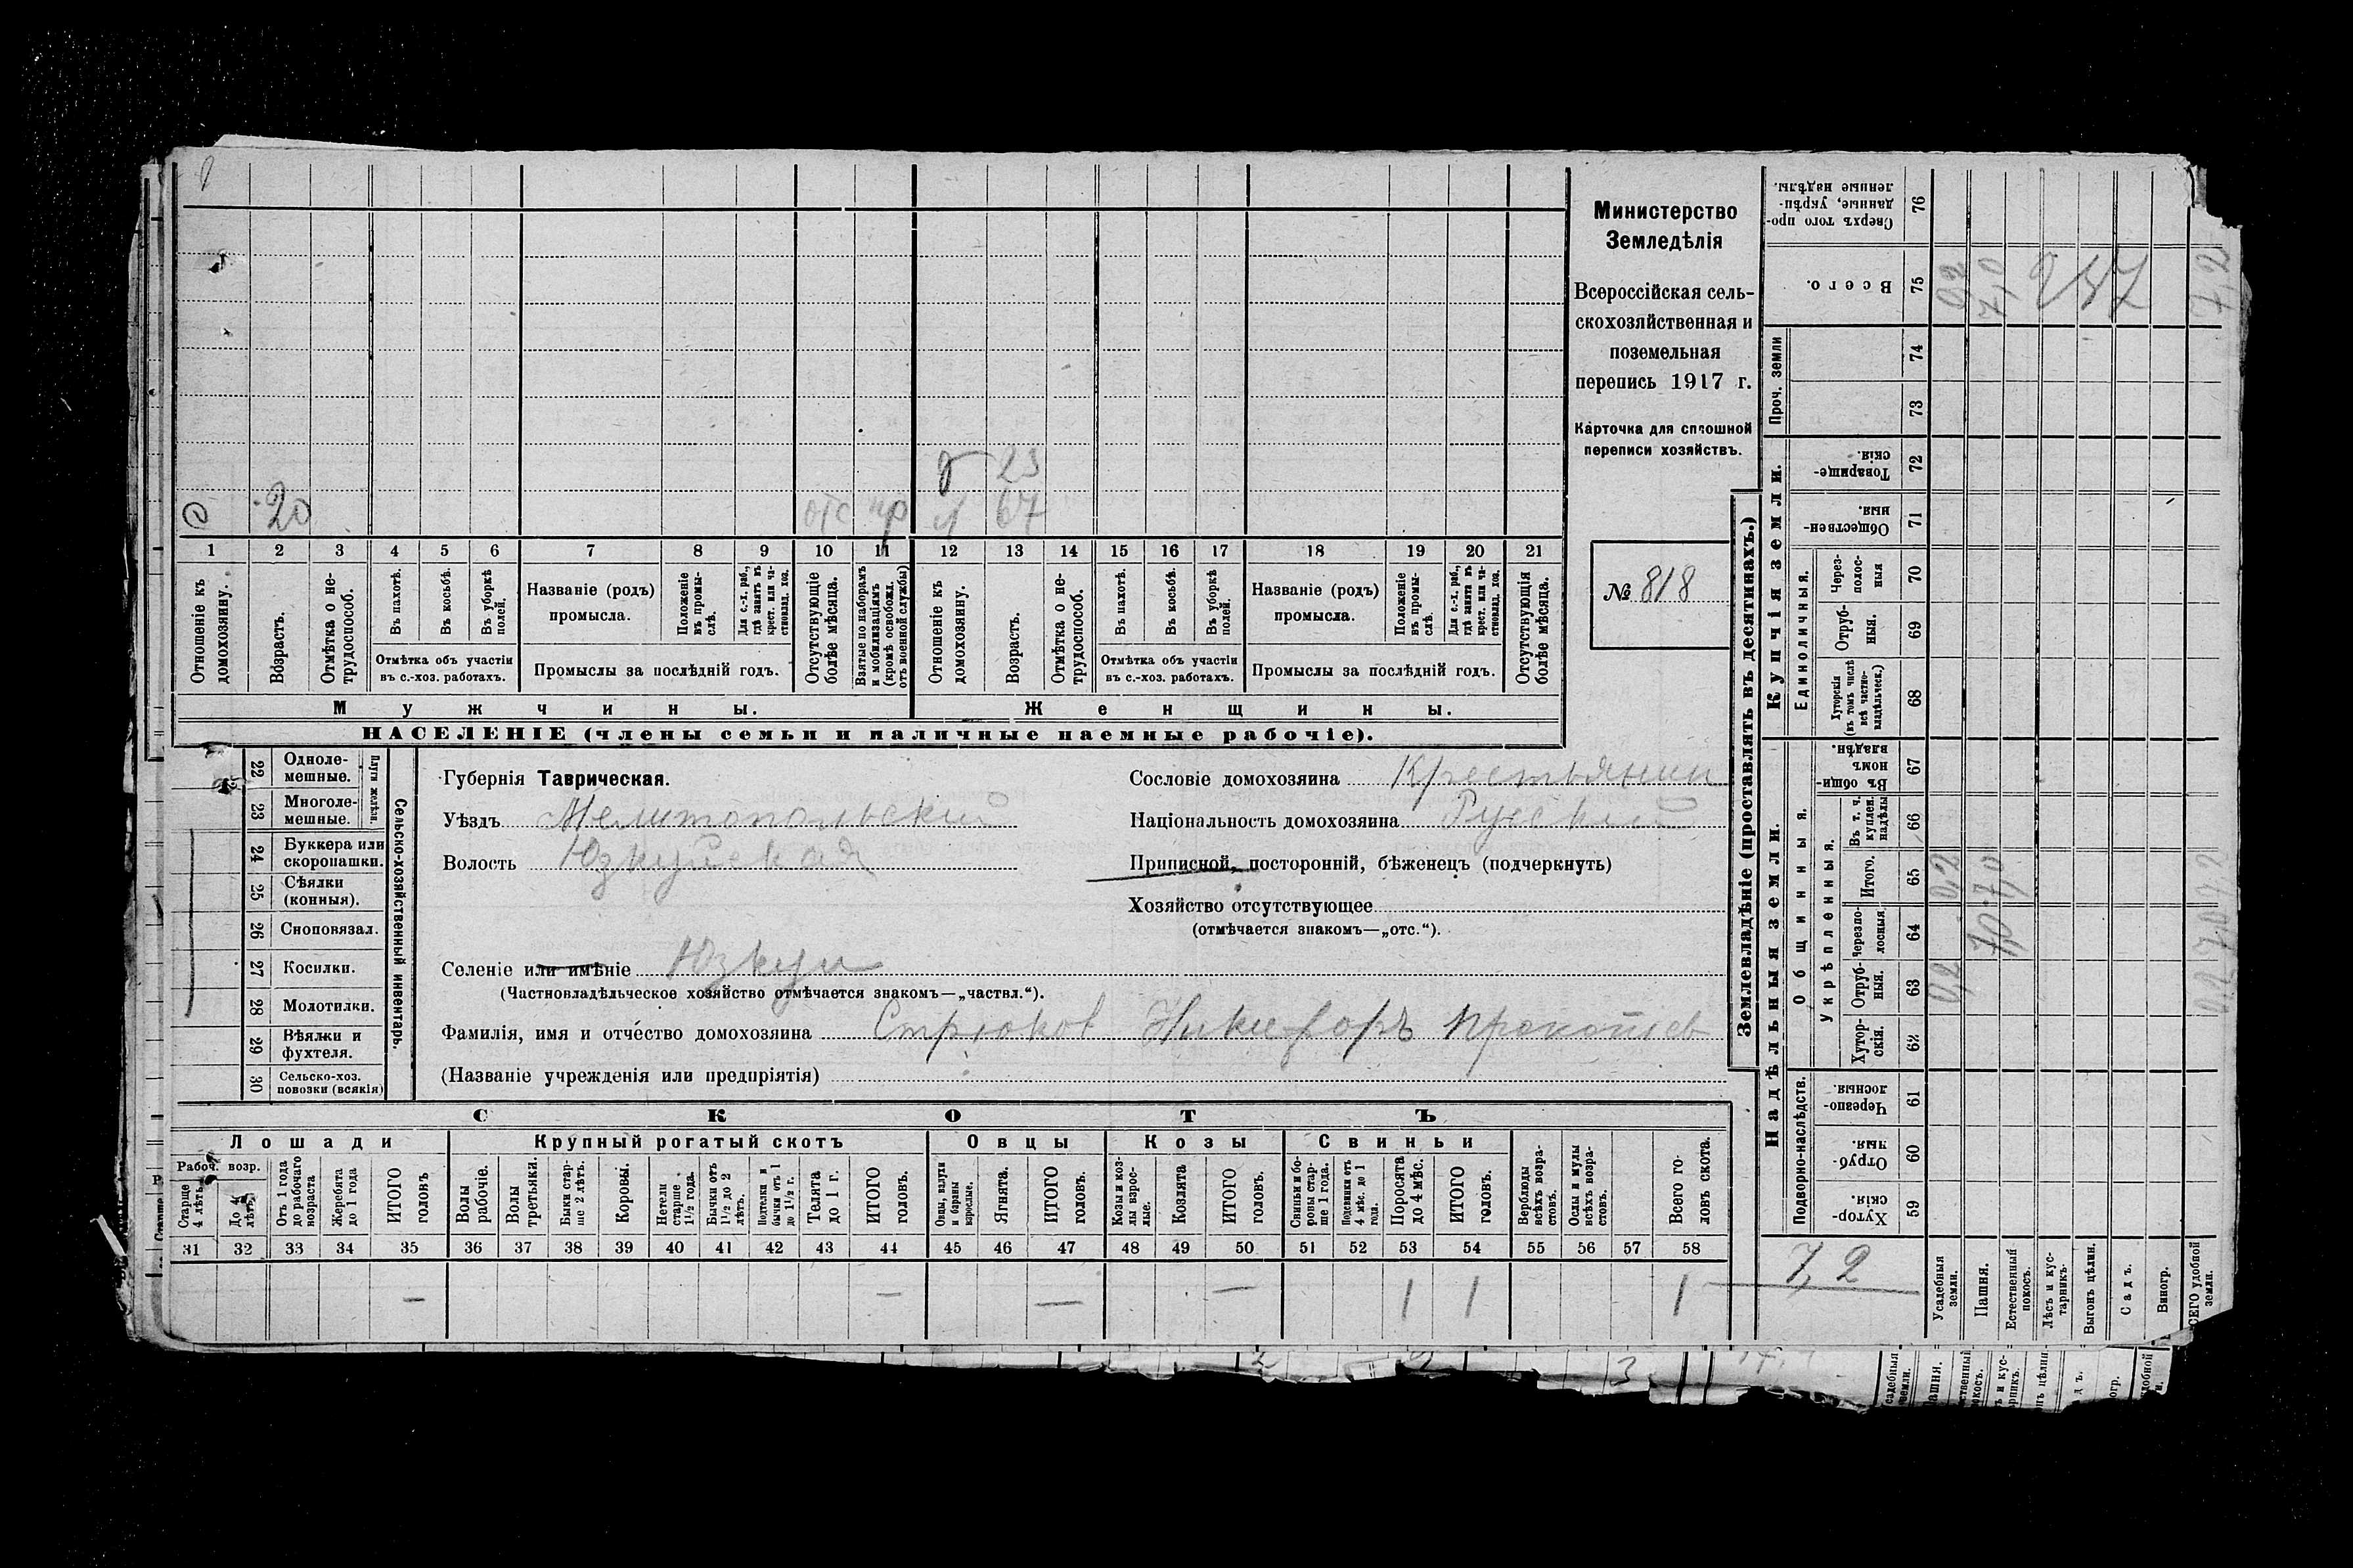 Министерство
Земледѣлія
Всероссійская сель-
скохозяйственная и
поземельная
перепись 1917 г.
Карточка для сплошной
переписи хозяйствъ.
№ 818
23
20 отс 67
1 2 3 4 5 6 7 8 9 10 11 12 13 14 15 16 17 18 19 20 21
Отношеніе къ домохозяину.
Возрастъ.
Отмѣтка о не-трудоспособ.
Въ пахотѣ.
Въ косьбѣ.
Въ уборкѣ полей.
Отмѣтка объ участіи
въ с.-хоз. работахъ.
Названіе (родъ)
промысла.
Положеніе въ промы-слѣ.
Для с.-х. раб., гдѣ занятъ въ крест. или ча-стновлад. хоз.
Промыслы за послѣдній годъ.
Отсутствующіе болѣе мѣсяца.
Взятые по наборамъ и мобилизаціямъ (кромѣ освобожд. отъ военной службы)
Отношеніе къ домохозяину.
Возрастъ.
Отмѣтка о не-трудоспособ.
Въ пахотѣ.
Въ косьбѣ.
Въ уборкѣ полей.
Отмѣтка объ участіи
въ с.-хоз. работахъ.
Названіе (родъ)
промысла.
Положеніе въ промы-слѣ.
Для с.-х. раб., гдѣ занята въ крест. или ча-стновлад. хоз.
Промыслы за послѣдній годъ.
Отсутствующія болѣе мѣсяца.
Мужчины.
Женщины.
НАСЕЛЕНІЕ (члены семьи и наличные наемные рабочіе).
Сельско-хозяйственный инвентарь.
Плуги желѣзн.
22 Одноле-мешные.
23 Многоле-мешные.
24 Буккера или скоропашки.
25 Сѣялки (конныя).
26 Сноповязал.
27 Косилки.
28 Молотилки.
29 Вѣялки и фухтеля.
30 Сельско-хоз. повозки (всякія)
Губернія Таврическая.
Уѣздъ Мелитопольскій
Волость Юзкуйская
Сословіе домохозяина Крестьянин
Національность домохозяина Русскій
Приписной, посторонній, бѣженецъ (подчеркнуть)
Хозяйство отсутствующее
(отмѣчается знакомъ—„отс.“).
Селеніе или имѣніе Юзкуи
(Частновладѣльческое хозяйство отмѣчается знакомъ—„частвл.“).
Фамилія, имя и отчество домохозяина Стрюков Никифоръ Прокопьев
(Названіе учрежденія или предпріятія)
СКОТЪ
Лошади
Крупный рогатый скотъ
Овцы
Козы
Свиньи
Рабоч. возр.
Старше 4 лѣтъ.
До 4 лѣтъ.
Отъ 1 года до рабочаго возраста
Жеребята до 1 года
ИТОГО головъ
Волы рабочіе.
Волы третьяки.
Быки стар-ше 2 лѣтъ.
Коровы.
Нетели старше 1½ года.
Бычки отъ 1½ до 2 лѣтъ.
Подтелки и бычки отъ 1 до 1½ г.
Телята до 1 г.
ИТОГО головъ.
Овцы, валухи и бараны взрослые.
Ягнята.
ИТОГО головъ.
Козы и коз-лы взрос-лые.
Козлята
ИТОГО головъ.
Свиньи и бо-ровы стар-ше 1 года.
Подсвинки отъ 4 мѣс. до 1 года.
Поросята до 4 мѣс.
ИТОГО головъ.
Верблюды всѣхъ возра-стовъ.
Ослы и мулы всѣхъ возра-стовъ.
Всего го-ловъ скота.
31 32 33 34 35 36 37 38 39 40 41 42 43 44 45 46 47 48 49 50 51 52 53 54 55 56 57 58
— — — — 1 1 1
7,2
Землевладѣніе (проставлять въ десятинахъ.)
Надѣльныя земли.
Купчія земли.
Проч. земли
Подворно-наслѣдств.
Общинныя.
Укрѣпленныя.
Единоличныя.
Сверхъ того про-данные, укрѣп-ленные надѣлы. 76
Всего. 75
74
73
Товарище-скія. 72
Обществен-ныя. 71
Через-полос-ныя 70
Отруб-ныя. 69
Хуторскія (въ томъ числѣ всѣ частно-владѣльческ.) 68
Въ общин-номъ владѣн. 67
Въ т. ч. куплен. надѣлы 66
Итого. 65
Черезпо-лосныя 64
Отруб-ныя. 63
Хутор-скія. 62
Черезпо-лосныя. 61
Отруб-ныя. 60
Хутор-скія. 59
Усадебныя земли.
Пашня.
Естественный покосъ.
Лѣсъ и кус-тарникъ.
Выгонъ цѣлин.
Садъ.
Виногр.
ВСЕГО удобной земли.
0,2 7,0 7,2
0,2 7,0
7,0
0,2
0,2 7,0 7,2